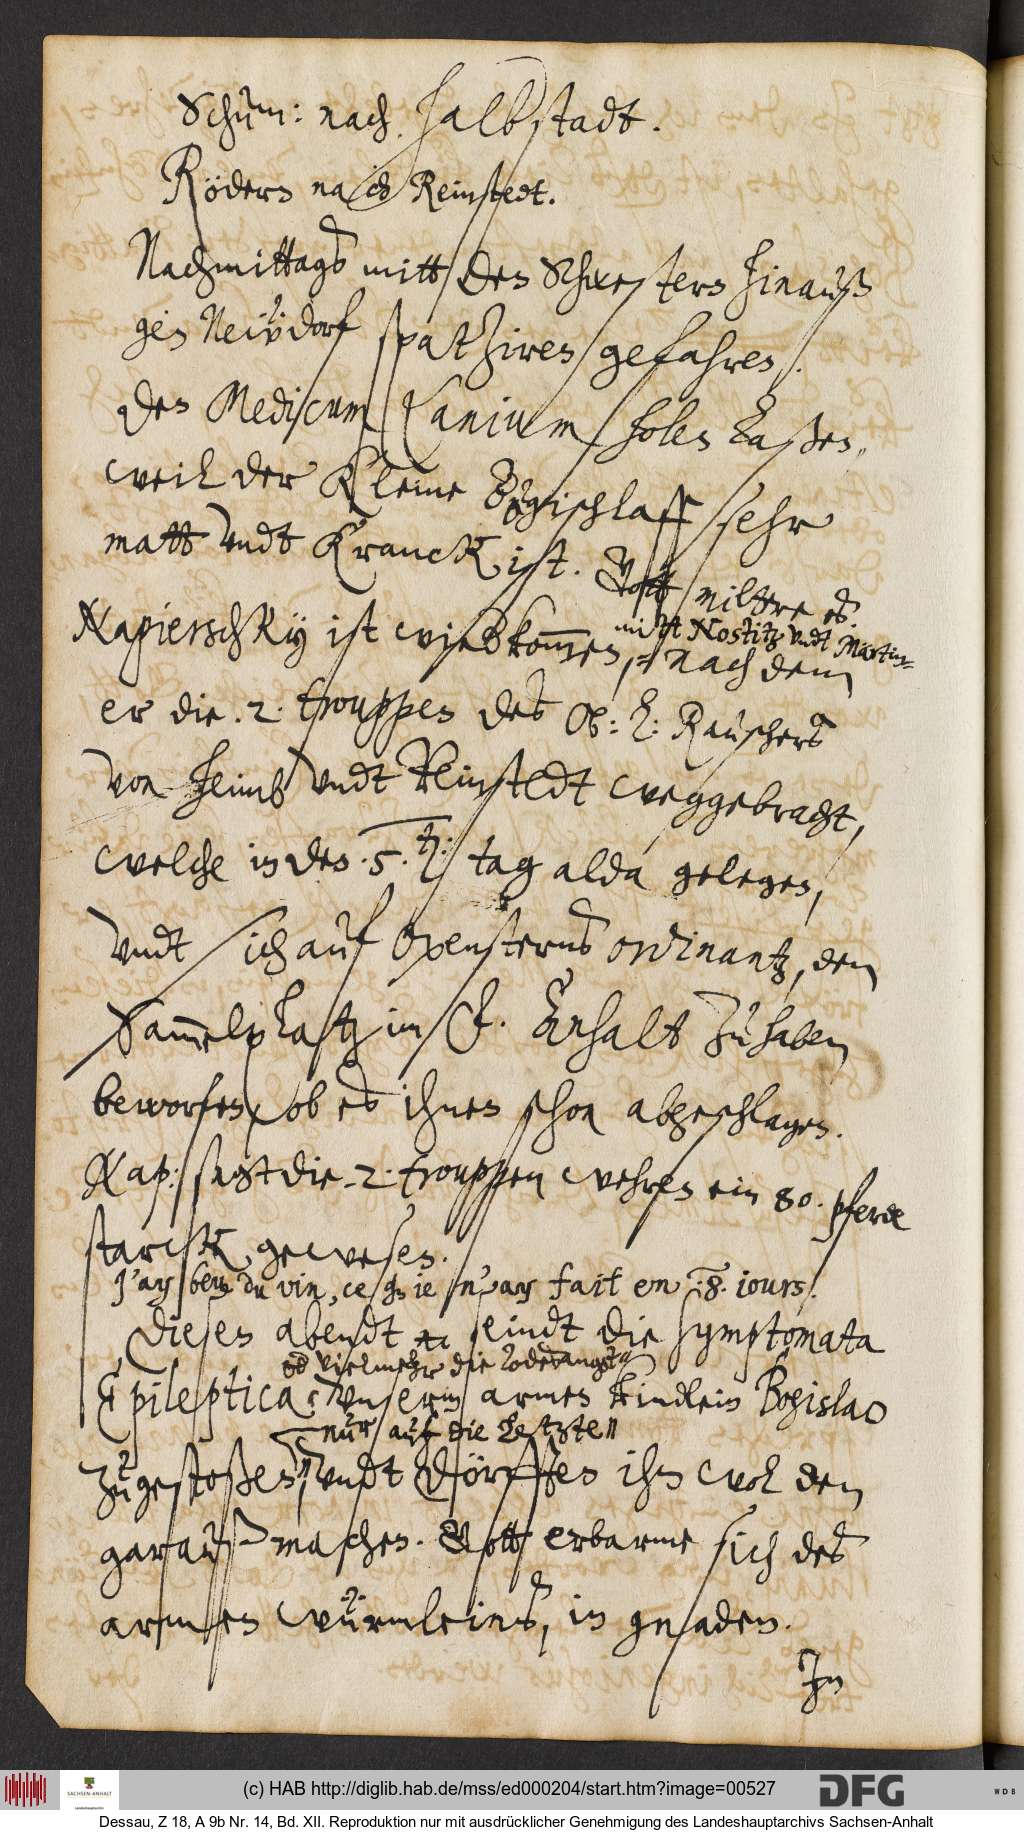 Schum: nach Halbstadt.
Röders nach Reinstedt.
Nachmittags mitt den Schwestern hinauß
gen Neudorf spatziren gefahren.
Den Medicum Canium holen laßen,
weil der kleine Bogischlaff sehr
matt undt kranck ist. Gott mildere es.
mitt Nostitz undt Martin
Napierschky ist wied kommen, nach dem
er die .2. trouppen des Ob: L: Rauschers
von Heimb undt Reinstedt weggebracht,
welche in den .5. t: tag alda gelegen,
undt sich auf Oxensterns ordinantz, den
Sammelplatz im F. Anhalt zu haben
beworfen, ob es ihnen schon abgeschlagen.
Nap: sagt die .2. trouppen wehren ein 80. pferde
starck gewesen.
J'ay beu du vin, ce q je n'ay fait en .8. jours.
Diesen abendt seindt die symptomata
od vielmehr die todesangst
Epileptica unserm armen kindlein Bogislao
nur auf die letzte
zugestoßen, undt dörfften ihm wol den
garauß machen. Gott erbarme sich des
armen würmleins, in gnaden.
In
(c) HAB http://diglib.hab.de/mss/ed000204/start.htm?image=00527
SACHSEN-ANHALT
Landeshauptarchiv
DFG
WDB
Dessau, Z 18, A 9b Nr. 14, Bd. XII. Reproduktion nur mit ausdrücklicher Genehmigung des Landeshauptarchivs Sachsen-Anhalt